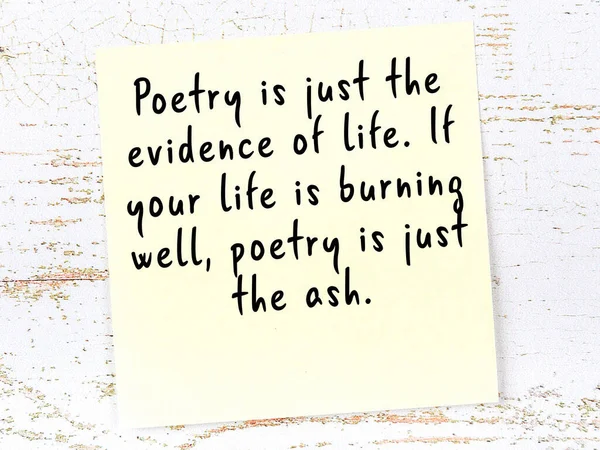 Poetry is just the
evidence of life. If
your life is burning
well, poetry is just
the ash.